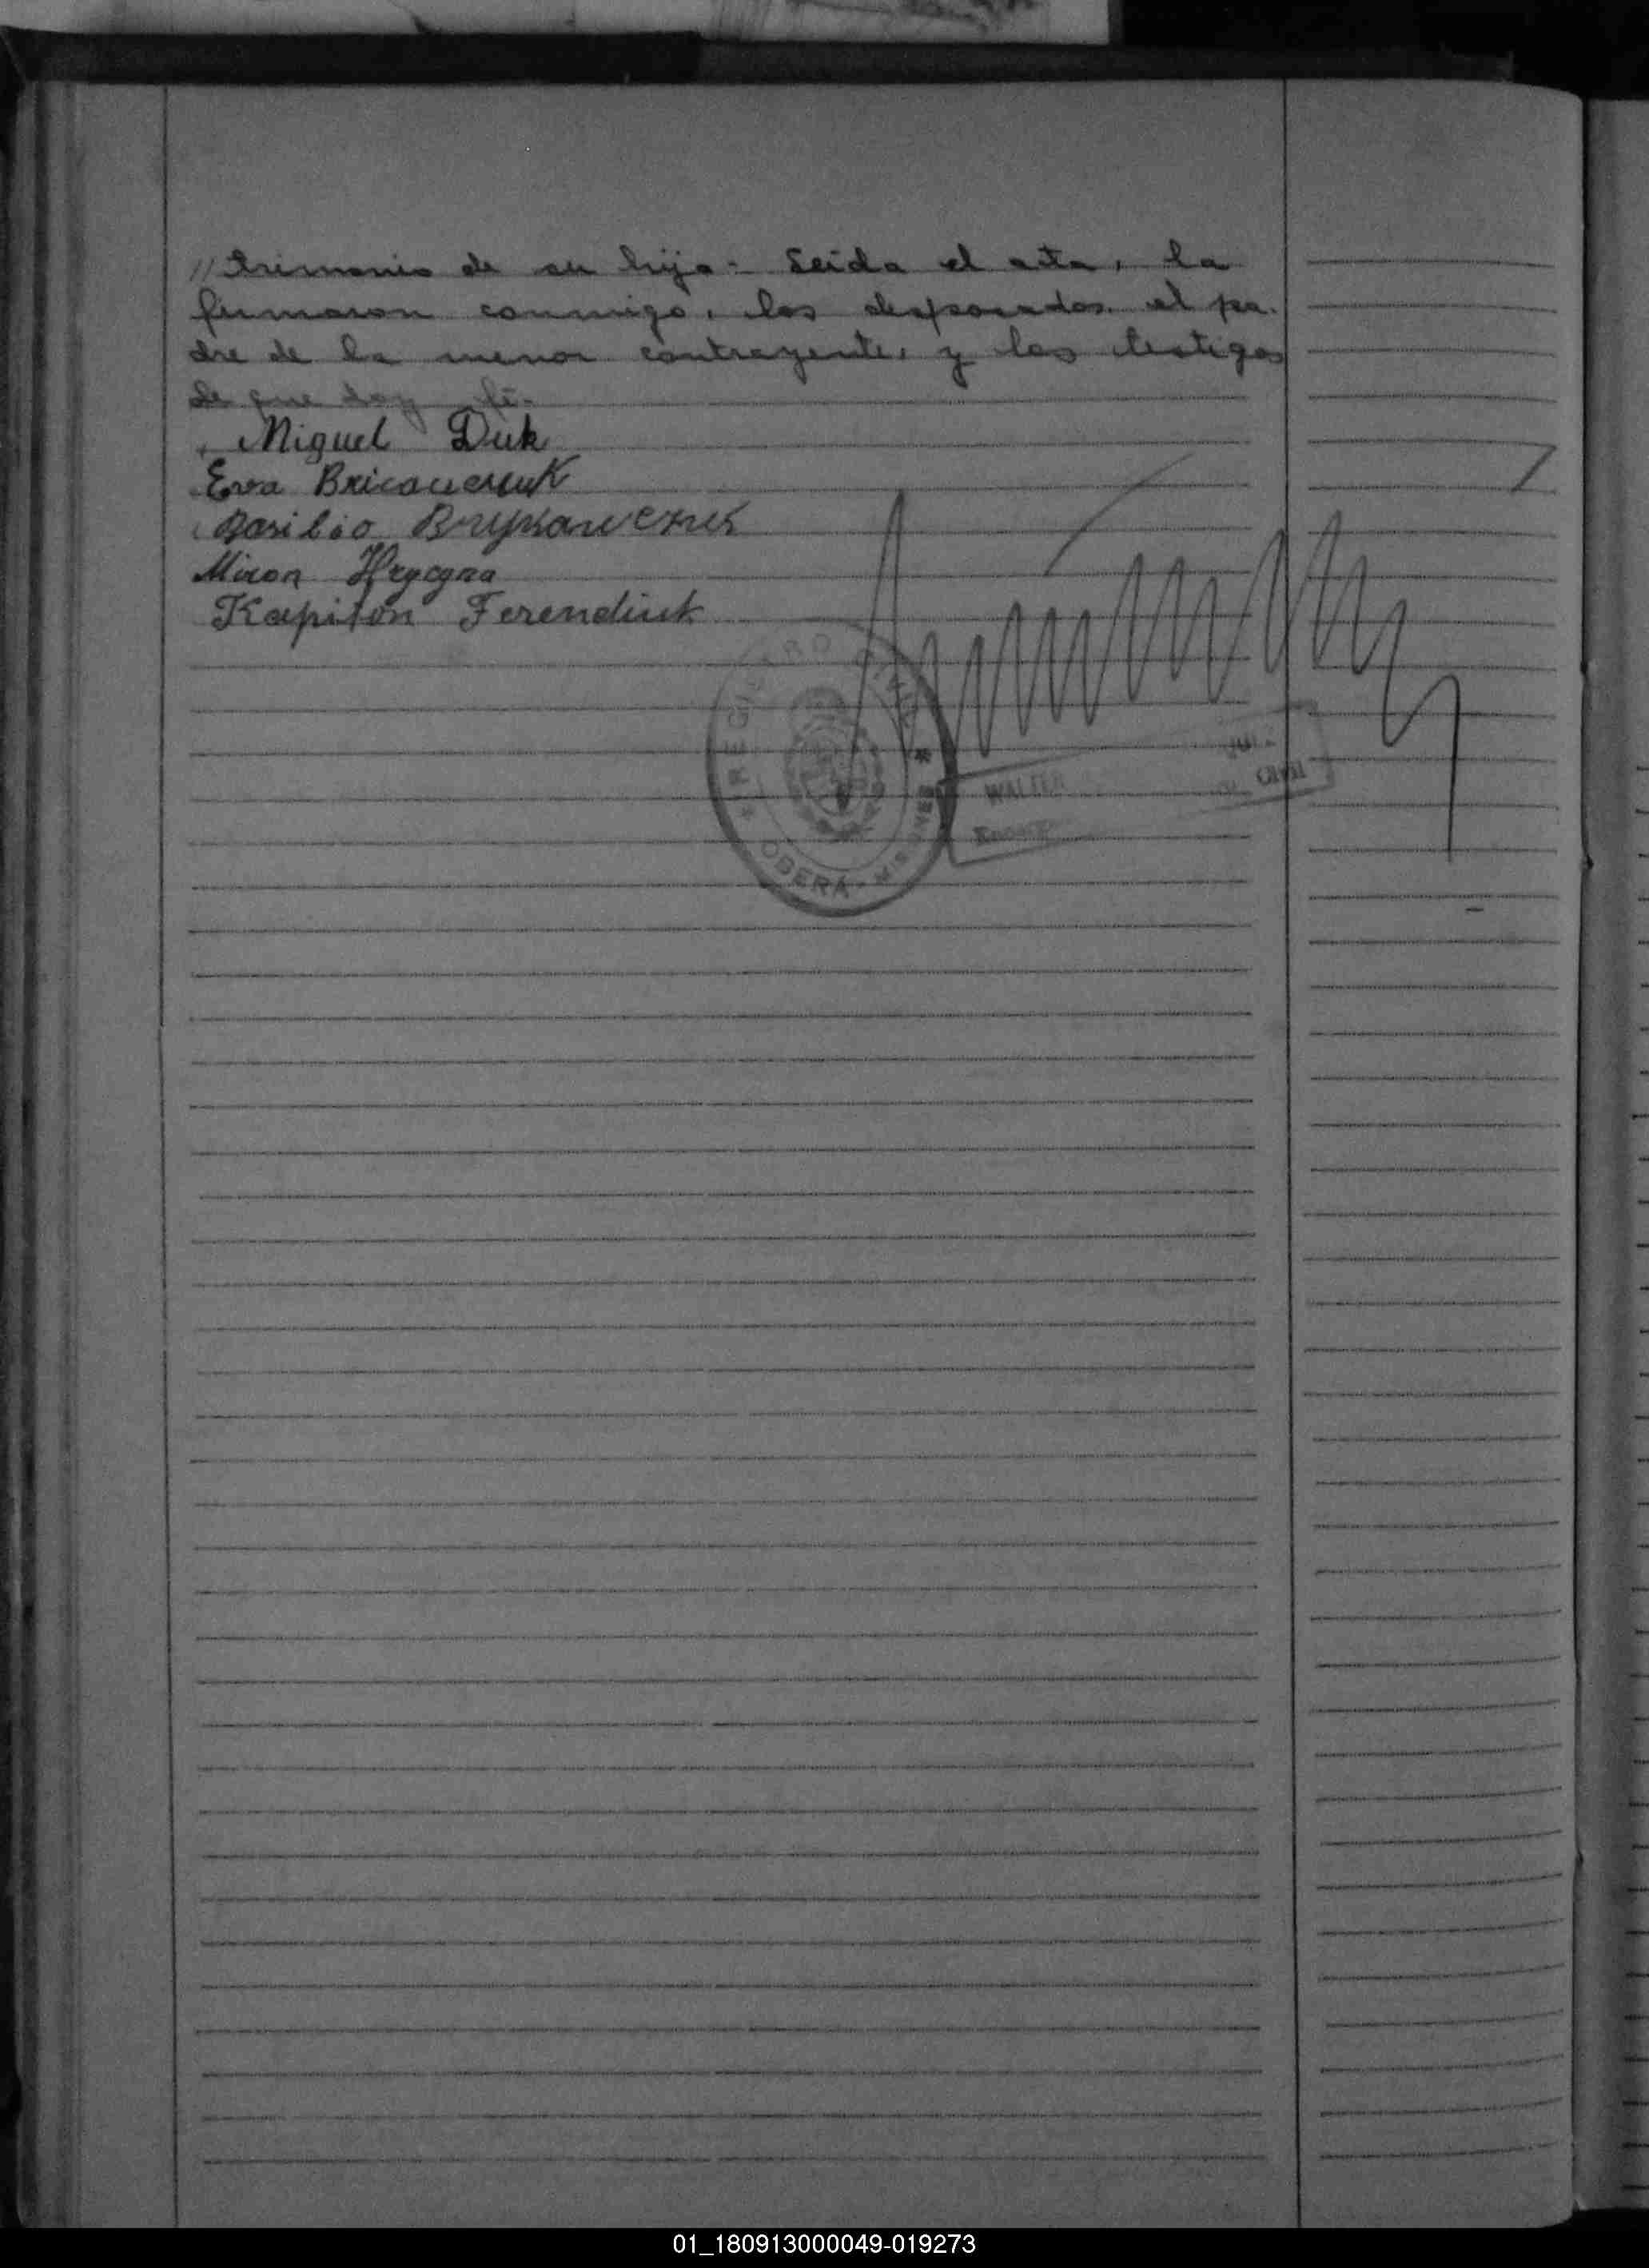 // trimonio de su hija - Leida el acta, la
firmaron conmigo, los desposados, el pa-
dre de la menor contrayente, y los testigos
de que doy fé.-
Miguel Duk
Eva Bricowczuk
Basilio Brykowczuk
Miron Hrycyna
Kapiton Ferendiuk
REGISTRO CIVIL
* OBERÁ - MISIONES *
WALTER
Civil
01_180913000049-019273